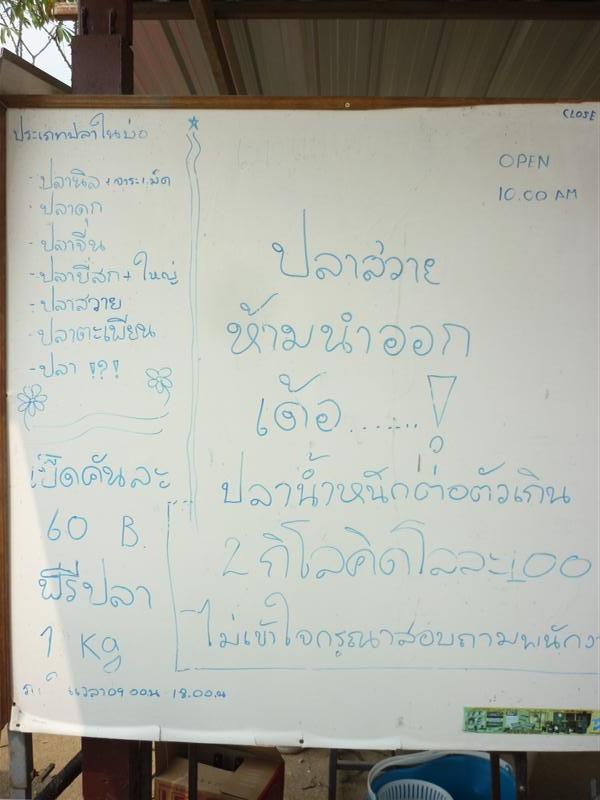 ประเภทปลาในบ่อ
- ปลานิล + จาระเม็ด
- ปลาดุก
- ปลาจีน
- ปลายี่สก + ใหญ่
- ปลาสวาย
- ปลาตะเพียน
- ปลา !?!
เบ็ดคันละ
60 B.
ฟรีปลา
1 Kg
เวลา 09.00น 18.00น
CLOSE
OPEN
10.00 AM
ปลาสวาย
ห้ามนำออก
เด้อ.......!
ปลาน้ำหนักต่อตัวเกิน
2 กิโลคิดโลละ 100
ไม่เข้าใจกรุณาสอบถามพนักง